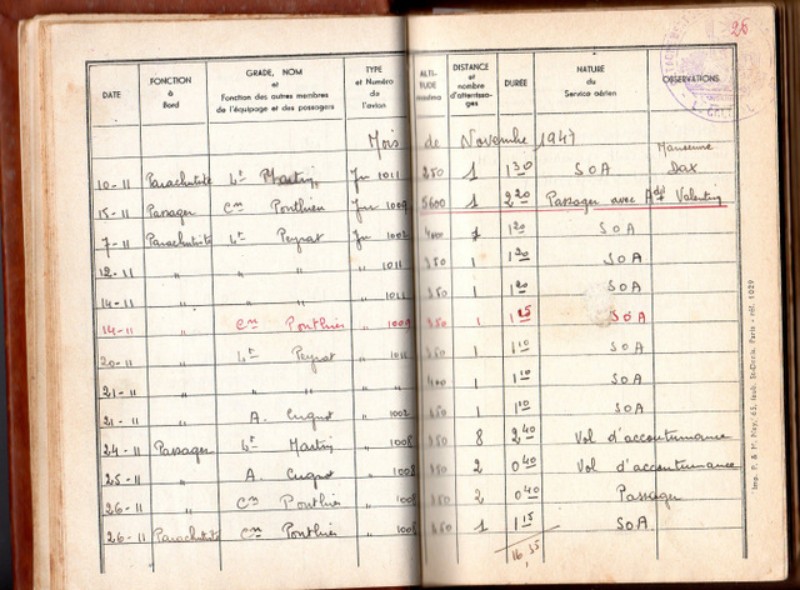 26
DATE FONCTION à Bord GRADE, NOM et Fonction des autres membres de l'équipage et des passagers TYPE et Numéro de l'avion ALTI- TUDE maxima DISTANCE et nombre d'atterrissages DURÉE NATURE du Service aérien OBSERVATIONS
Mois de Novembre 1947
10-11 Parachutiste Lt Martin Ju 1011 250 1 1 30 SOA Dax
15-11 Passager Cne Ponthieu Ju 1009 5600 1 2 20 Passager avec Adjt Valentin
7-11 Parachutiste Lt Peyrat Ju 1002 400 1 1 20 SOA
12-11 " " " " 1011 350 1 1 30 SOA
14-11 " " " " 1011 350 1 1 20 SOA
14-11 " Cne Ponthieu " 1009 350 1 1 15 SOA
20-11 " Lt Peyrat " 1011 350 1 1 10 SOA
21-11 " " " " " 400 1 1 10 SOA
21-11 " A. Cugnot " 1002 350 1 1 10 SOA
24-11 Passager Lt Martin " 1008 350 8 2 40 Vol d'accoutumance
25-11 " A. Cugnot " 1008 350 2 0 40 Vol d'accoutumance
26-11 " Cne Ponthieu " 1008 350 2 0 40 Passager
26-11 Parachutiste Cne Ponthieu " 1008 350 1 1 15 SOA
16,35